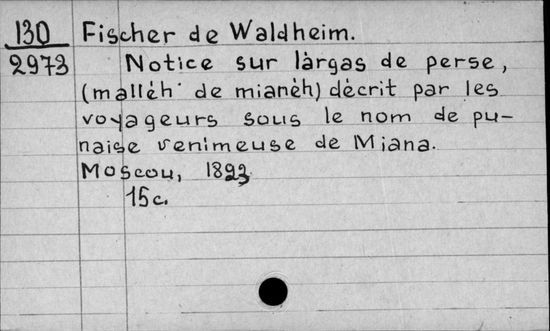 130 Fischer de Waldheim.
2973 Notice sur làrgas de perse,
(mallèh de mianèh) dècrit par les
voyageurs sous le nom de pu-
naise venimeuse de Miana.
Moscou, 1823
15c.